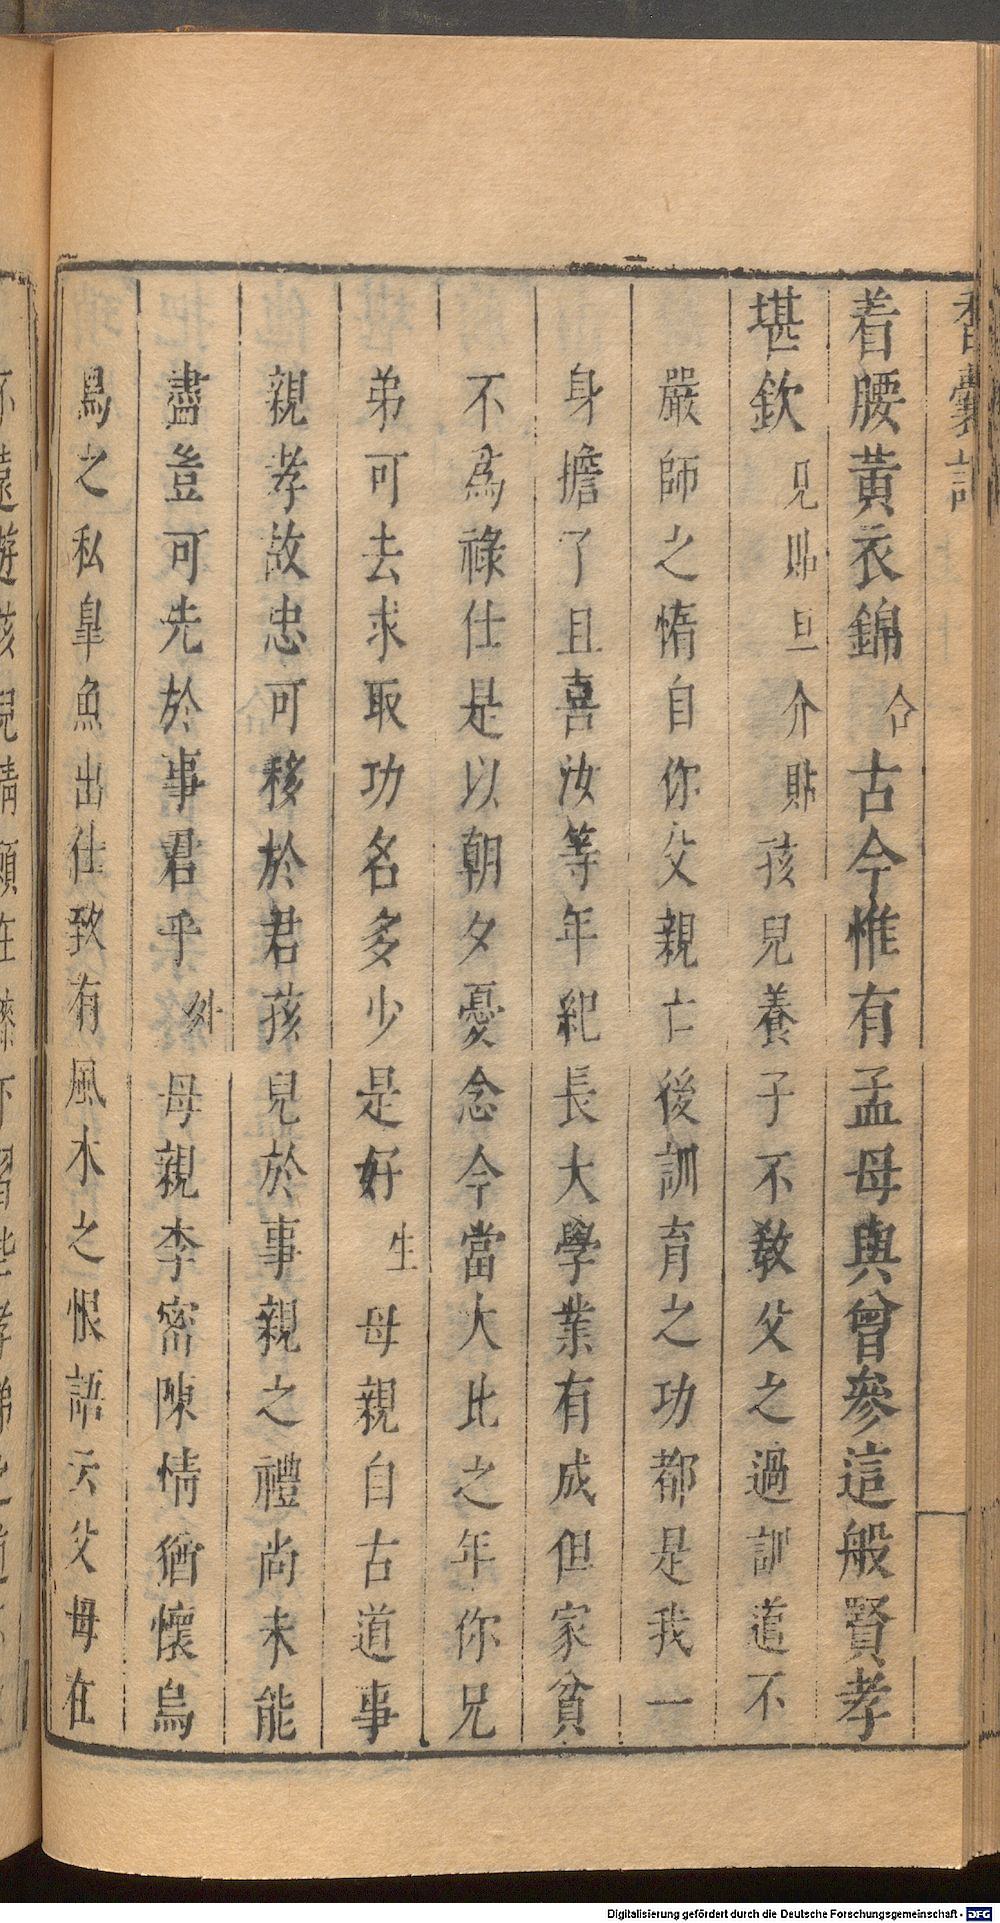 香囊記
着腰黃衣錦合古今惟有孟母與曾參這般賢孝
堪欽見貼旦介貼孩兒養子不敎父之過訓道不
嚴師之惰自你父親亡後訓育之功都是我一
身擔了且喜汝等年紀長大學業有成但家貧
不爲祿仕是以朝夕憂念今當大比之年你兄
弟可去求取功名多少是好生母親自古道事
親孝故忠可移於君孩兒於事親之禮尚未能
盡豈可先於事君乎外母親李密陳情猶懷烏
鳥之私皐魚出仕致有風水之恨語云父母在
不遠遊孩兒情願在膝下習些孝弟之道
Digitalisierung gefördert durch die Deutsche Forschungsgemeinschaft - DFG